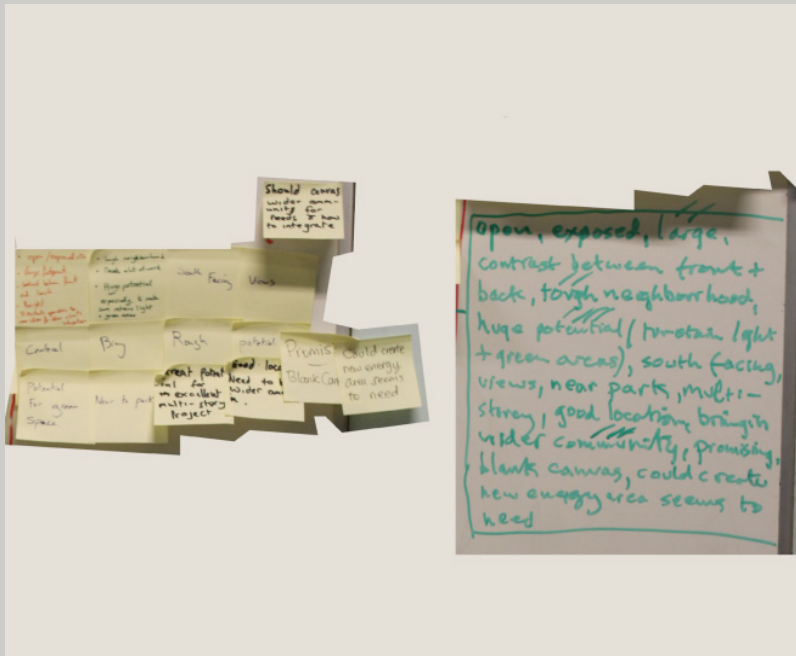 Should canvas
wider comm-
unity for
needs & how
to integrate
open/exposed site
tough neighbourhood
Huge potential
especially to make
green areas
South Facing
Views
Central
Big
Rough
potential
Promis
Blank Can
Could create
new energy
area seems
to need
Potential
For green
Space
Near to park
reat poten
ial for
n excellent
multi-story
Project
ood loca
Need to b
wider com
open, exposed, large,
contrast between front +
back, tough neighbourhood,
huge potential (to retain light
+ green areas), south facing,
views, near park, multi-
storey, good location, bring in
wider community, promising,
blank canvas, could create
new energy area seems to
need